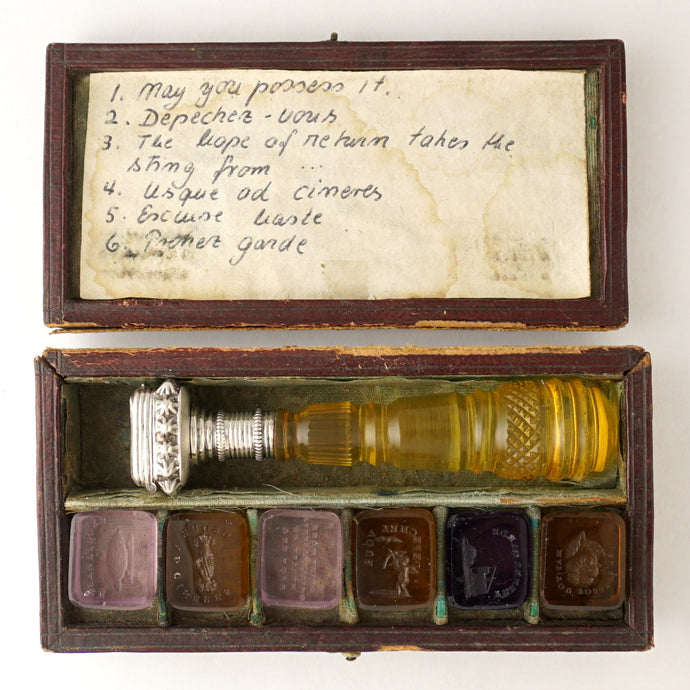 1. May you possess it.
2. Depechez-vous
3. The hope of return takes the
sting from ...
4. Usque ad cineres
5. Excuse haste
6. Prenez garde